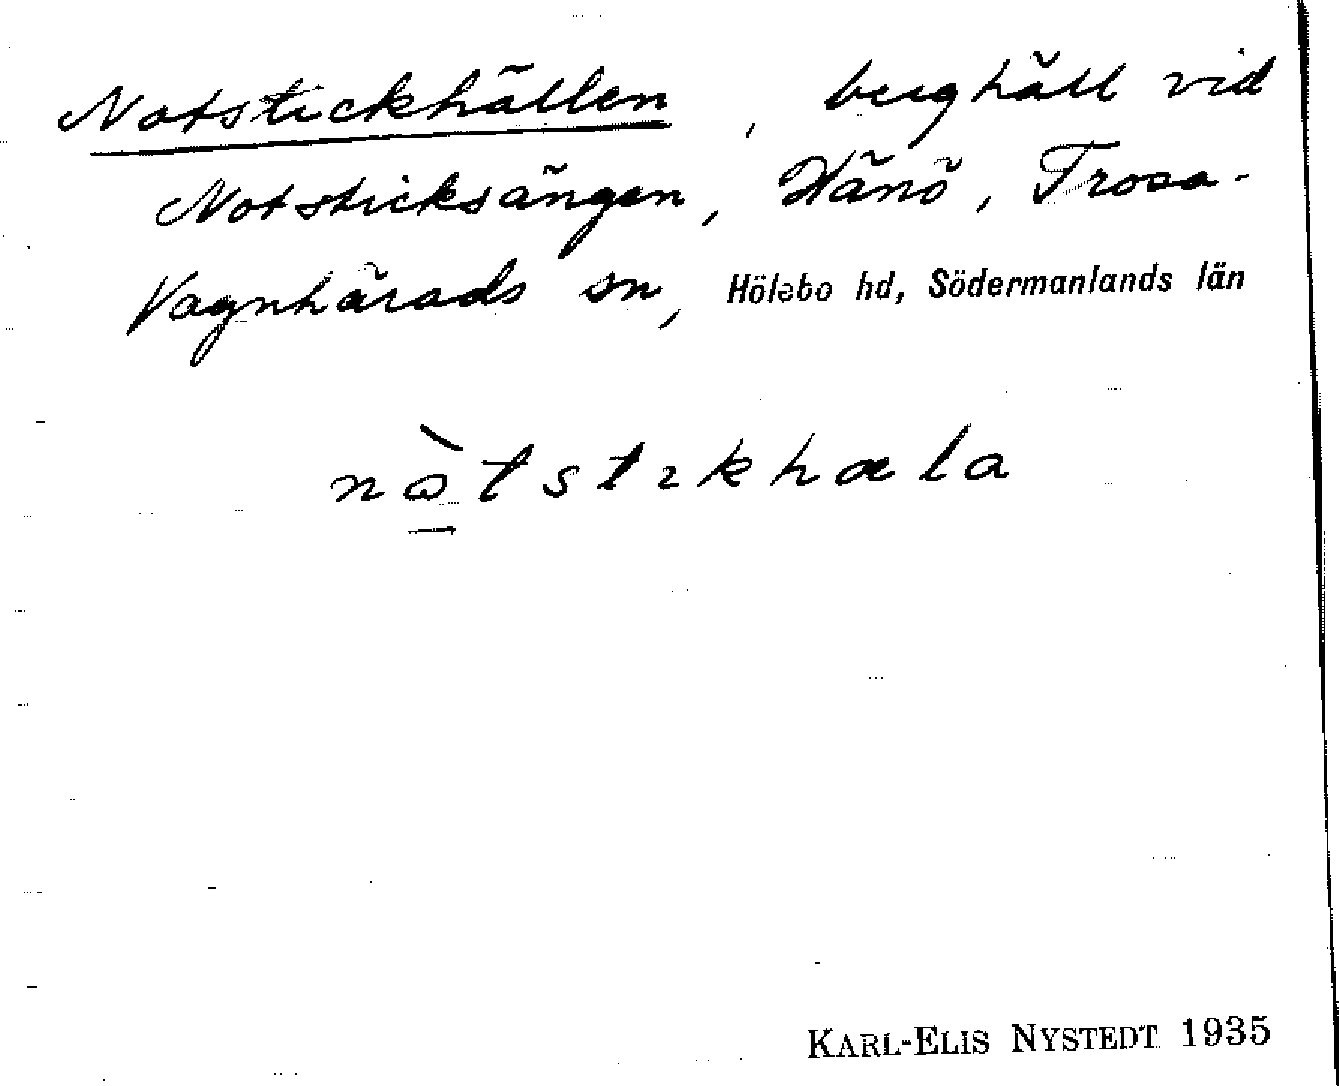 Notstickhällen, berghäll vid
Notsticksängen, Hänö, Trosa-
Vagnhärads sn, Hölebo hd, Södermanlands län
nὼtstıkhæla
KARL-ELIS NYSTEDT 1935